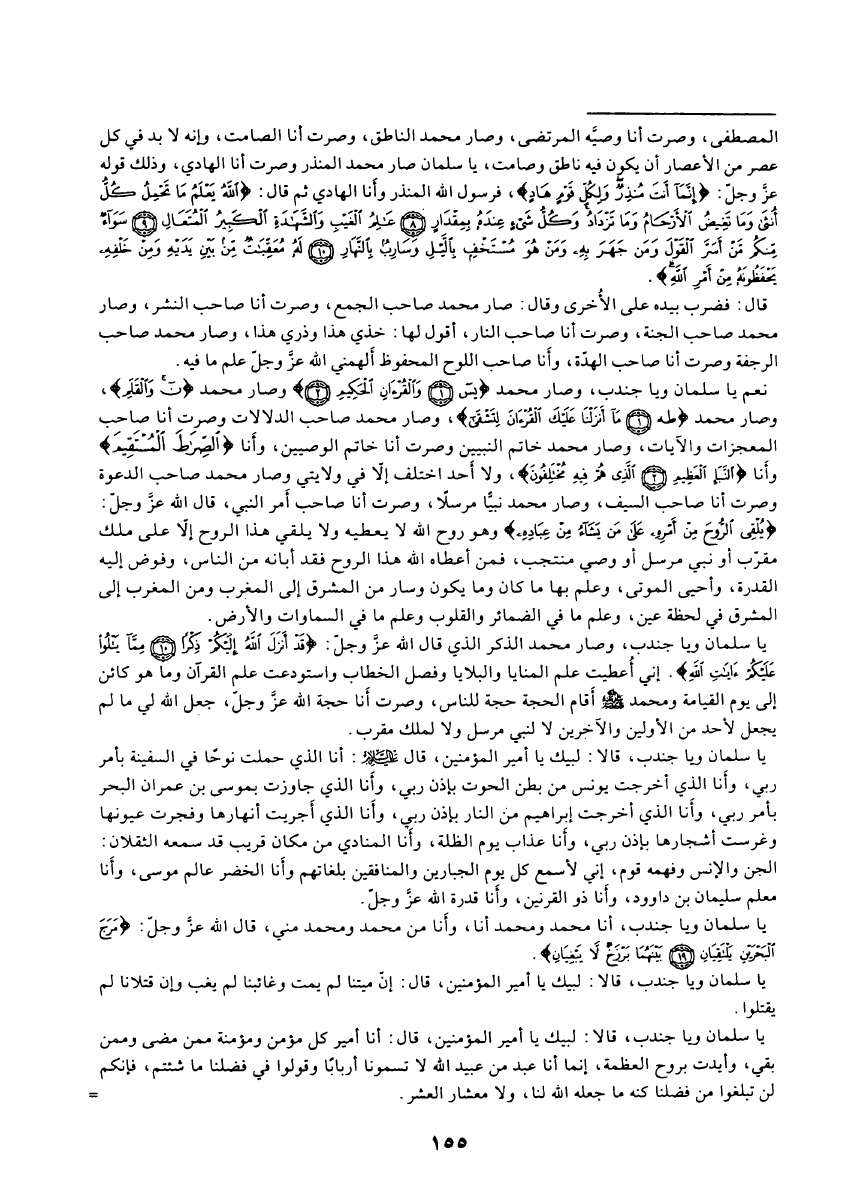 المصطفى، وصرت أنا وصيَّه المرتضى، وصار محمد الناطق، وصرت أنا الصامت، وإنه لا بد في كل
عصر من الأعصار أن يكون فيه ناطق وصامت، يا سلمان صار محمد المنذر وصرت أنا الهادي، وذلك قوله
عزَّ وجلّ: ﴿إِنَّمَا أَنتَ مُنذِرٌ وَلِكُلِّ قَوْمٍ هَادٍ﴾، فرسول الله المنذر وأنا الهادي ثم قال: ﴿اللَّهُ يَعْلَمُ مَا تَحْمِلُ كُلُّ
أُنثَى وَمَا تَغِيضُ الْأَرْحَامُ وَمَا تَزْدَادُ وَكُلُّ شَيْءٍ عِندَهُ بِمِقْدَارٍ ﴿٨﴾ عَالِمُ الْغَيْبِ وَالشَّهَادَةِ الْكَبِيرُ الْمُتَعَالِ ﴿٩﴾ سَوَاءٌ
مِّنكُم مَّنْ أَسَرَّ الْقَوْلَ وَمَن جَهَرَ بِهِ وَمَنْ هُوَ مُسْتَخْفٍ بِاللَّيْلِ وَسَارِبٌ بِالنَّهَارِ ﴿١٠﴾ لَهُ مُعَقِّبَاتٌ مِّن بَيْنِ يَدَيْهِ وَمِنْ خَلْفِهِ
يَحْفَظُونَهُ مِنْ أَمْرِ اللَّهِ﴾.
قال: فضرب بيده على الأُخرى وقال: صار محمد صاحب الجمع، وصرت أنا صاحب النشر، وصار
محمد صاحب الجنة، وصرت أنا صاحب النار، أقول لها: خذي هذا وذري هذا، وصار محمد صاحب
الرجفة وصرت أنا صاحب الهدّة، وأنا صاحب اللوح المحفوظ ألهمني الله عزَّ وجلّ علم ما فيه.
نعم يا سلمان ويا جندب، وصار محمد ﴿يسٓ ﴿١﴾ وَالْقُرْءَانِ الْحَكِيمِ ﴿٢﴾﴾ وصار محمد ﴿نٓ وَالْقَلَمِ﴾،
وصار محمد ﴿طه ﴿١﴾ مَا أَنزَلْنَا عَلَيْكَ الْقُرْءَانَ لِتَشْقَى﴾، وصار محمد صاحب الدلالات وصرت أنا صاحب
المعجزات والآيات، وصار محمد خاتم النبيين وصرت أنا خاتم الوصيين، وأنا ﴿الصِّرَاطَ الْمُسْتَقِيمَ﴾
وأنا ﴿النَّبَإِ الْعَظِيمِ ﴿٢﴾ الَّذِي هُمْ فِيهِ مُخْتَلِفُونَ﴾، ولا أحد اختلف إلّا في ولايتي وصار محمد صاحب الدعوة
وصرت أنا صاحب السيف، وصار محمد نبيًّا مرسلًا، وصرت أنا صاحب أمر النبي، قال الله عزَّ وجلّ:
﴿يُلْقِي الرُّوحَ مِنْ أَمْرِهِ عَلَى مَن يَشَاءُ مِنْ عِبَادِهِ﴾ وهو روح الله لا يعطيه ولا يلقي هذا الروح إلّا على ملك
مقرّب أو نبي مرسل أو وصي منتجب، فمن أعطاه الله هذا الروح فقد أبانه من الناس، وفوض إليه
القدرة، وأحيى الموتى، وعلم بها ما كان وما يكون وسار من المشرق إلى المغرب ومن المغرب إلى
المشرق في لحظة عين، وعلم ما في الضمائر والقلوب وعلم ما في السماوات والأرض.
يا سلمان ويا جندب، وصار محمد الذكر الذي قال الله عزَّ وجلّ: ﴿قَدْ أَنزَلَ اللَّهُ إِلَيْكُمْ ذِكْرًا ﴿١٠﴾ مِمَّا يَتْلُوا
عَلَيْكُمْ ءَايَاتِ اللَّهِ﴾. إني أُعطيت علم المنايا والبلايا وفصل الخطاب واستودعت علم القرآن وما هو كائن
إلى يوم القيامة ومحمد ﷺ أقام الحجة حجة للناس، وصرت أنا حجة الله عزَّ وجلّ، جعل الله لي ما لم
يجعل لأحد من الأولين والآخرين لا لنبي مرسل ولا لملك مقرب.
يا سلمان ويا جندب، قالا: لبيك يا أمير المؤمنين، قال عليه السلام: أنا الذي حملت نوحًا في السفينة بأمر
ربي، وأنا الذي أخرجت يونس من بطن الحوت بإذن ربي، وأنا الذي جاوزت بموسى بن عمران البحر
بأمر ربي، وأنا الذي أخرجت إبراهيم من النار بإذن ربي، وأنا الذي أجريت أنهارها وفجرت عيونها
وغرست أشجارها بإذن ربي، وأنا عذاب يوم الظلة، وأنا المنادي من مكان قريب قد سمعه الثقلان:
الجن والإنس وفهمه قوم، إني لأسمع كل يوم الجبارين والمنافقين بلغاتهم وأنا الخضر عالم موسى، وأنا
معلم سليمان بن داوود، وأنا ذو القرنين، وأنا قدرة الله عزَّ وجلّ.
يا سلمان ويا جندب، أنا محمد ومحمد أنا، وأنا من محمد ومحمد مني، قال الله عزَّ وجلّ: ﴿مَرَجَ
الْبَحْرَيْنِ يَلْتَقِيَانِ ﴿١٩﴾ بَيْنَهُمَا بَرْزَخٌ لَّا يَبْغِيَانِ﴾.
يا سلمان ويا جندب، قالا: لبيك يا أمير المؤمنين، قال: إنّ ميتنا لم يمت وغائبنا لم يغب وإن قتلانا لم
يقتلوا.
يا سلمان ويا جندب، قالا: لبيك يا أمير المؤمنين، قال: أنا أمير كل مؤمن ومؤمنة ممن مضى وممن
بقي، وأيدت بروح العظمة، إنما أنا عبد من عبيد الله لا تسمونا أربابًا وقولوا في فضلنا ما شئتم، فإنكم
لن تبلغوا من فضلنا كنه ما جعله الله لنا، ولا معشار العشر. =
١٥٥